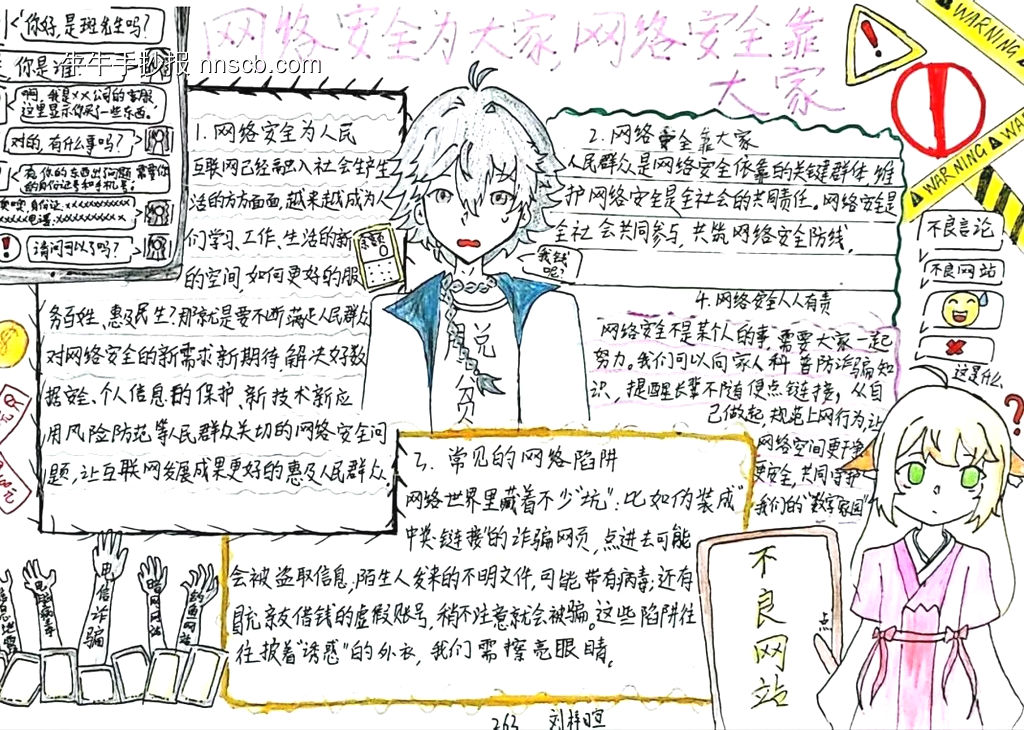 网络安全为大家,网络安全靠
大家
牛牛手抄报 nnscb.com
你好,是班先生吗?
你是谁
啊,我是xx公司的客服
这里显示你买了一些东西。
对的,有什么事吗?
请问可以了吗?
1.网络安全为人民
互联网已经融入社会生产生
活的方方面面,越来越成为人
们学习、工作、生活的新
的空间,如何更好的服
务百姓,惠及民生?那就是要不断满足人民群众
对网络安全的新需求新期待,解决好数
据安全、个人信息的保护、新技术新应
用风险防范等人民群众关切的网络安全问
题,让互联网发展成果更好的惠及人民群众。
余额
0
我钱
呢?
2.网络安全靠大家
人民群众是网络安全依靠的关键群体,维
护网络安全是全社会的共同责任。网络安全是
全社会共同参与,共筑网络安全防线。
4.网络安全人人有责
网络安全不是某个人的事,需要大家一起
努力。我们可以向家人科普防诈骗知
识,提醒长辈不随便点链接,从自
己做起,规范上网行为,让
网络空间更干净
更安全,共同守护
我们的"数字家园"
3.常见的网络陷阱
网络世界里藏着不少"坑":比如伪装成"
中奖链接"的诈骗网页,点进去可能
会被盗取信息;陌生人发来的不明文件,可能带有病毒;还有
冒充亲友借钱的虚假账号,稍不注意就会被骗。这些陷阱往
往披着"诱惑"的外衣,我们需擦亮眼睛。
WARNING
WARNING
WARNING
不良言论
不良网站
这是什么
?
电信诈骗
不良网站
点
263 刘梓暄